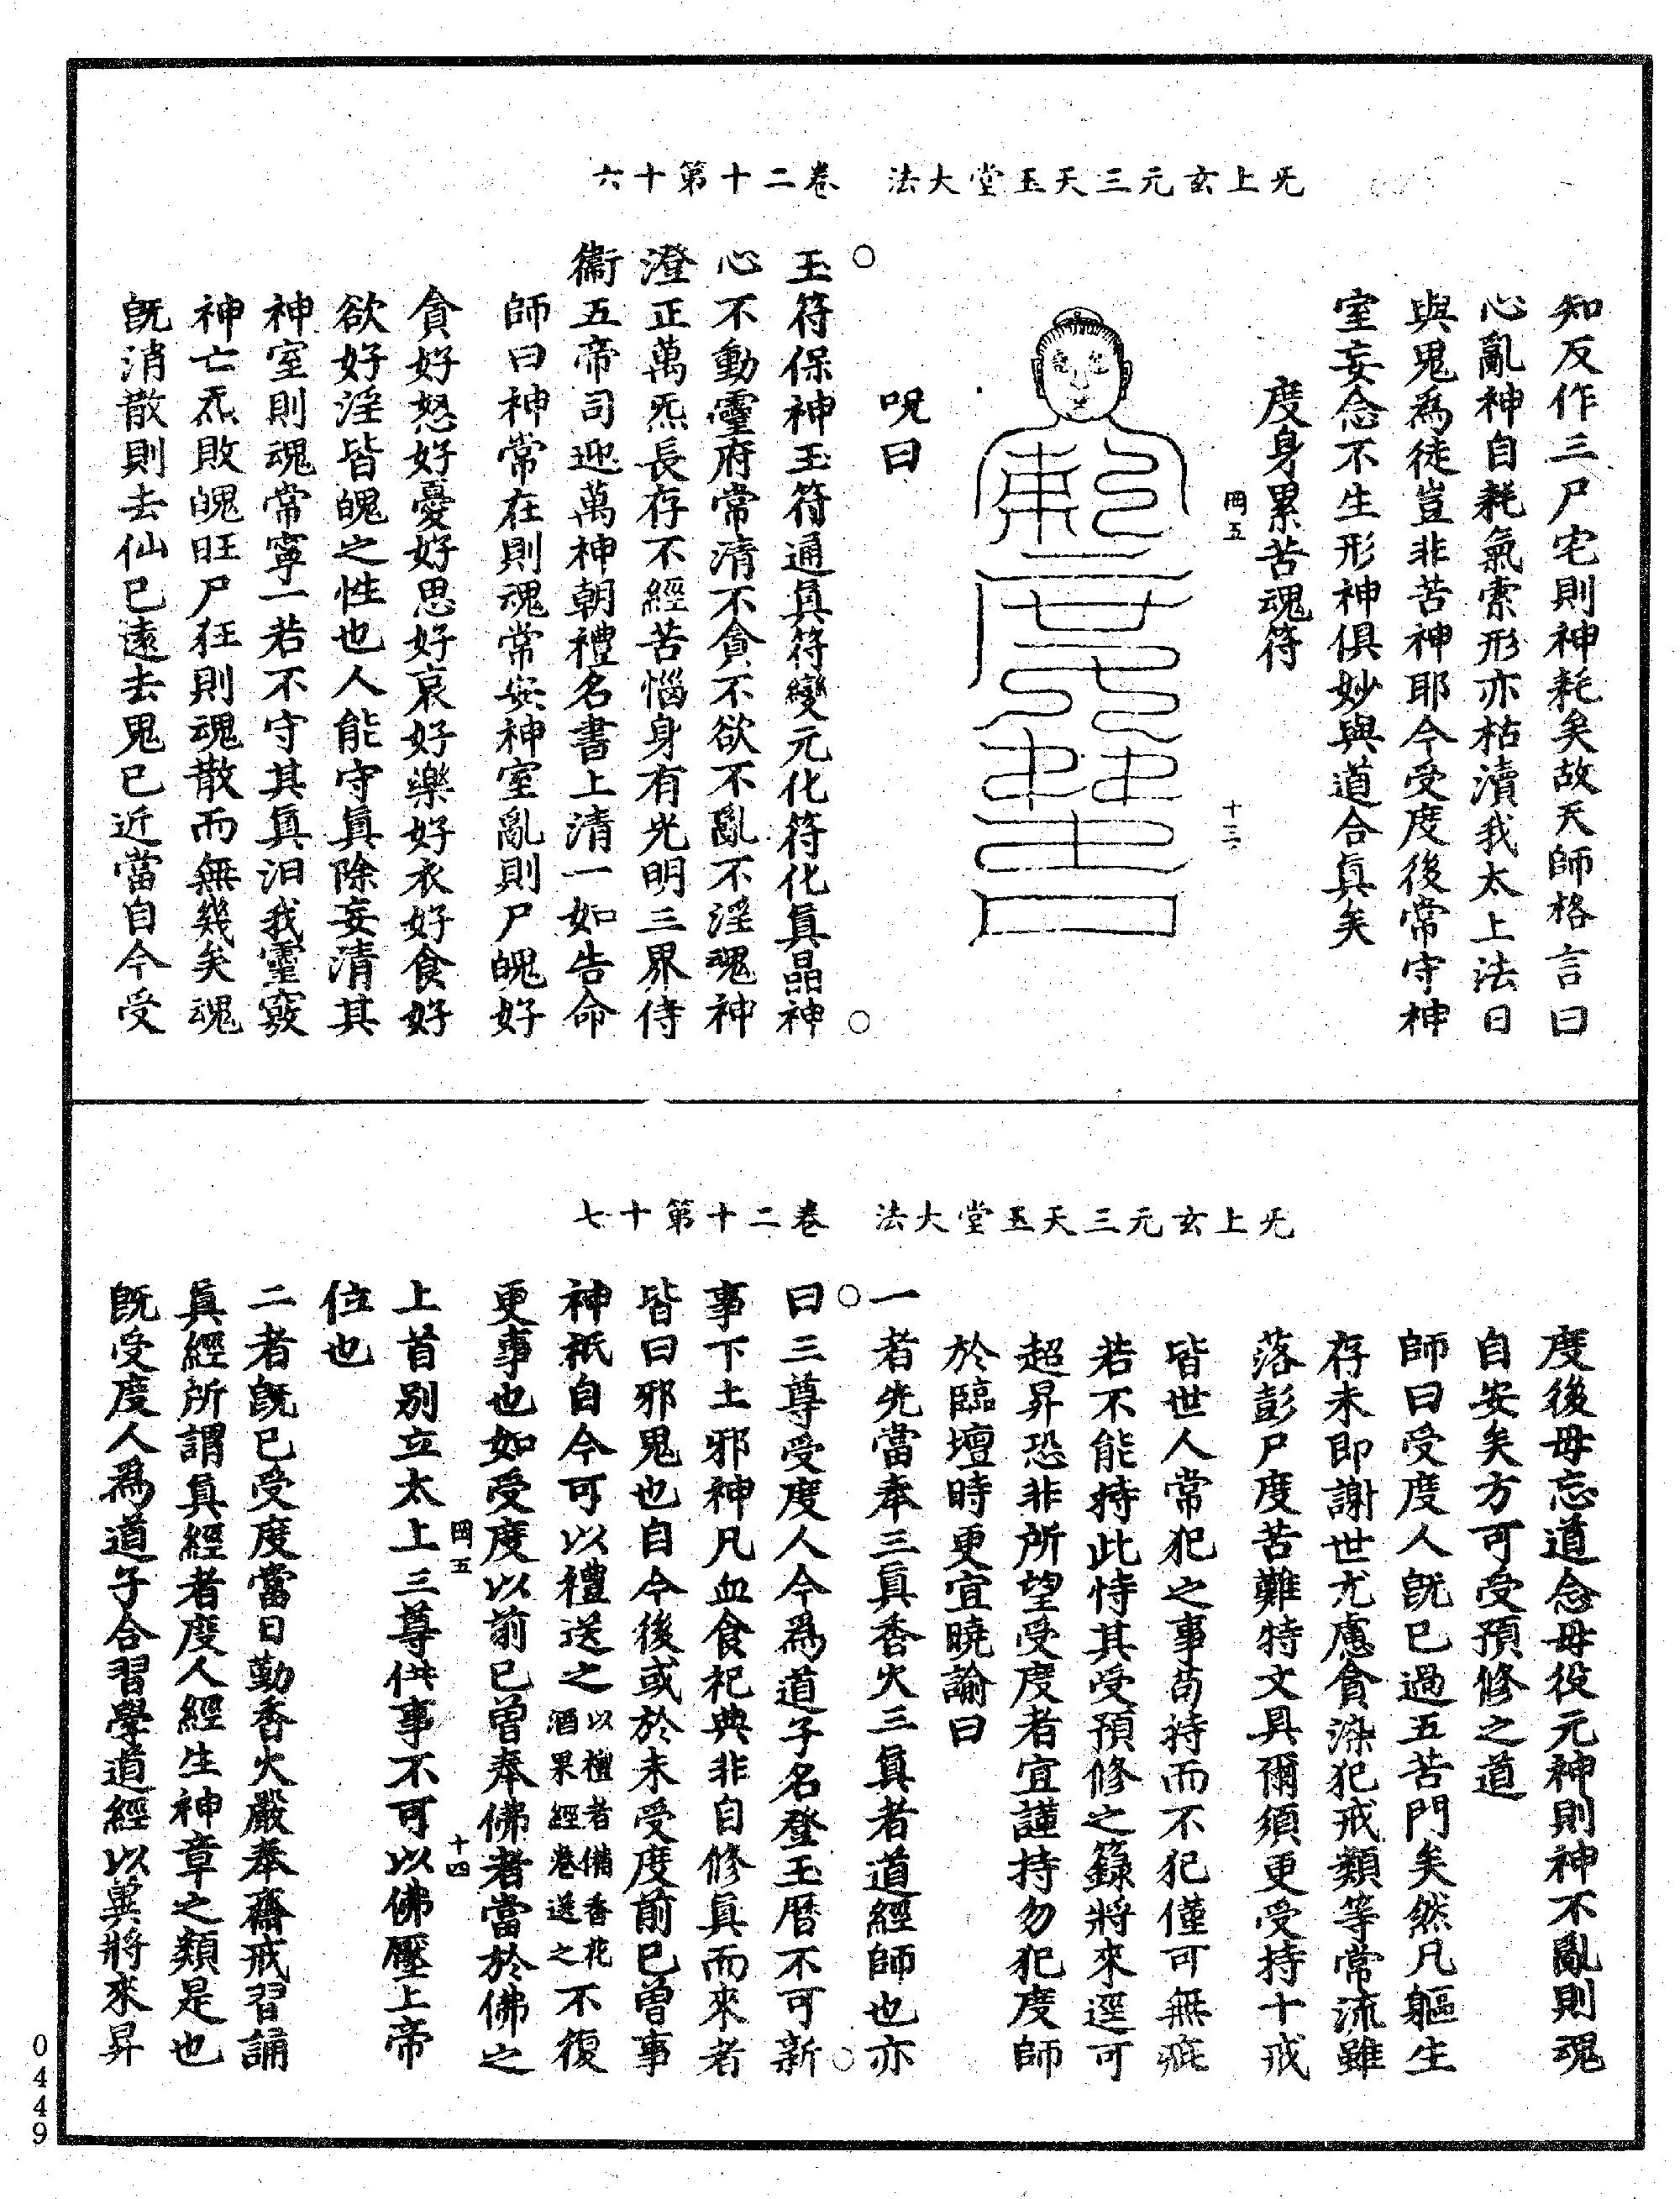 无上玄元三天玉堂大法　卷二十第十六
知反作三尸宅則神耗矣故天師格言曰
心亂神自耗氣索形亦枯瀆我太上法日
與鬼爲徒豈非苦神耶今受度後常守神
室妄念不生形神俱妙與道合真矣
度身累苦魂符
岡五
十三
呪曰
玉符保神玉符通真符變元化符化真品神
心不動靈府常清不貪不欲不亂不淫魂神
澄正萬炁長存不經苦惱身有光明三界侍
衛五帝司迎萬神朝禮名書上清一如告命
師曰神常在則魂常安神室亂則尸魄好
貪好怒好憂好思好哀好樂好衣好食好
欲好淫皆魄之性也人能守真除妄清其
神室則魂常寧一若不守其真汩我靈竅
神亡炁敗魄旺尸狂則魂散而無幾矣魂
旣消散則去仙已遠去鬼已近當自今受
无上玄元三天玉堂大法　卷二十第十七
度後毋忘道念毋役元神則神不亂則魂
自安矣方可受預修之道
師曰受度人旣已過五苦門矣然凡軀生
存未即謝世尤慮貪染犯戒類等常流雖
落彭尸度苦難特文具爾須更受持十戒
皆世人常犯之事苟持而不犯僅可無疵
若不能持此恃其受預修之籙將來逕可
超昇恐非所望受度者宜謹持勿犯度師
於臨壇時更宜曉諭曰
一者先當奉三真香火三真者道經師也亦
曰三尊受度人今爲道子名登玉曆不可新
事下土邪神凡血食祀典非自修真而來者
皆曰邪鬼也自今後或於未受度前已曾事
神祇自今可以禮送之以禮者備香花酒果經卷送之不復
更事也如受度以前已曾奉佛者當於佛之
岡五
十四
上首別立太上三尊供事不可以佛壓上帝
位也
二者旣已受度當日勤香火嚴奉齋戒習誦
真經所謂真經者度人經生神章之類是也
旣受度人爲道子合習學道經以冀將來昇
0449